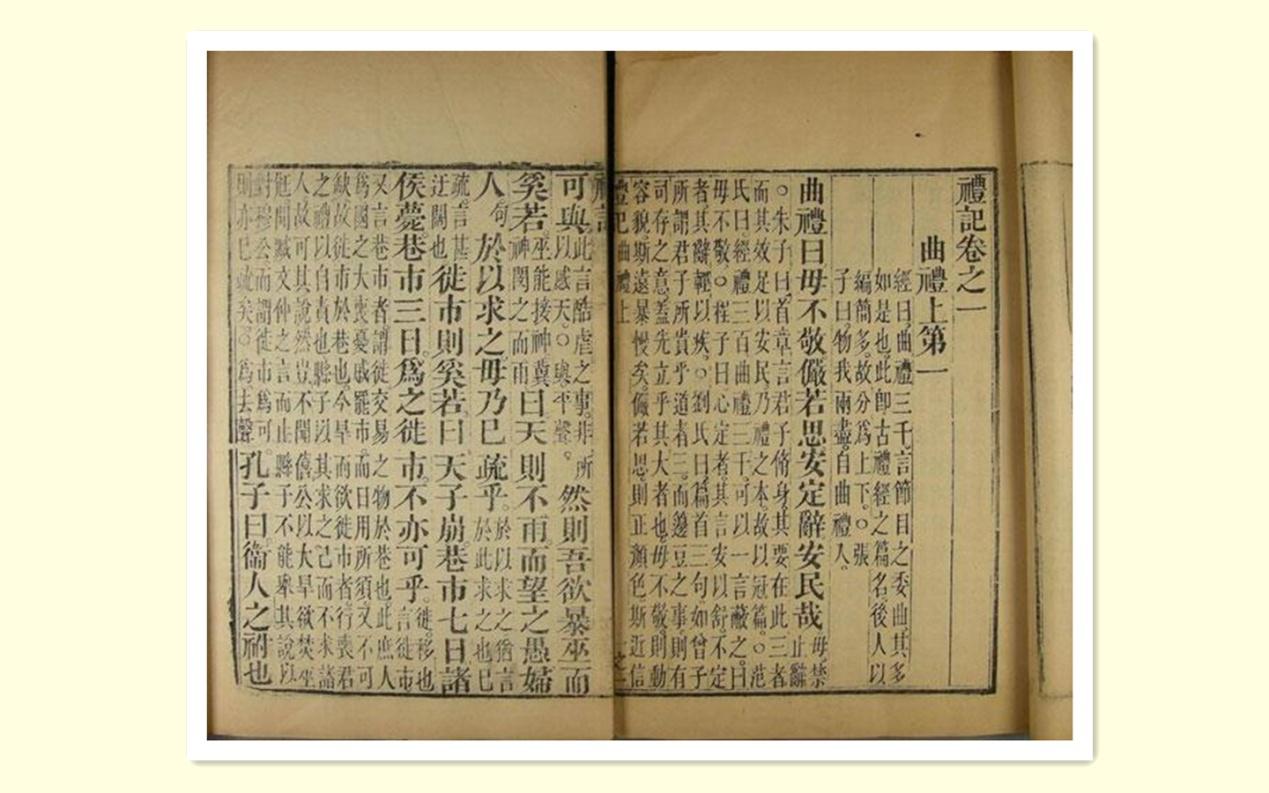 禮記卷之一
曲禮上第一
經曰曲禮三千言節目之委曲其多
如是也此卽古禮經之篇名後人以
編簡多故分爲上下○張
子曰物我兩盡自曲禮入
曲禮曰毋不敬儼若思安定辭安民哉毋禁止辭
○朱子曰首章言君子脩身其要在此三者
而其效足以安民乃禮之本故以冠篇○范
氏曰經禮三百曲禮三千可以一言蔽之曰
毋不敬○程子曰心定者其言安以舒不定
者其辭輕以疾○劉氏曰篇首三句如曾子
所謂君子所貴乎道者三而籩豆之事則有
司存之意蓋先立乎其大者也毋不敬則動
容貌斯遠暴慢矣儼若思則正顏色斯近信
禮記 曲禮上
禮記
可與此言酷虐之事非所以感天○與平聲。然則吾欲暴巫而
奚若巫能接神冀神閔之而雨曰天則不雨而望之愚婦
人句於以求之毋乃已疏乎於以求之猶言於此求之也已
疏言甚迂闊也徙市則奚若曰天子崩巷市七日諸
侯薨巷市三日爲之徙市不亦可乎徙移也言徙市
又言巷市者謂徙交易之物於巷也此庶人
爲國之大喪憂戚罷市而日用所須又不可
缺故徙市於巷也今旱而欲徙市者行喪君
之禮以自責也縣子以其求之己而不求諸
人故可其說然豈不聞僖公以大旱欲焚巫
尫聞臧文仲之言而止縣子不能舉其說以
對穆公而謂徙市爲可
則亦已疏矣○爲去聲孔子曰衞人之祔也